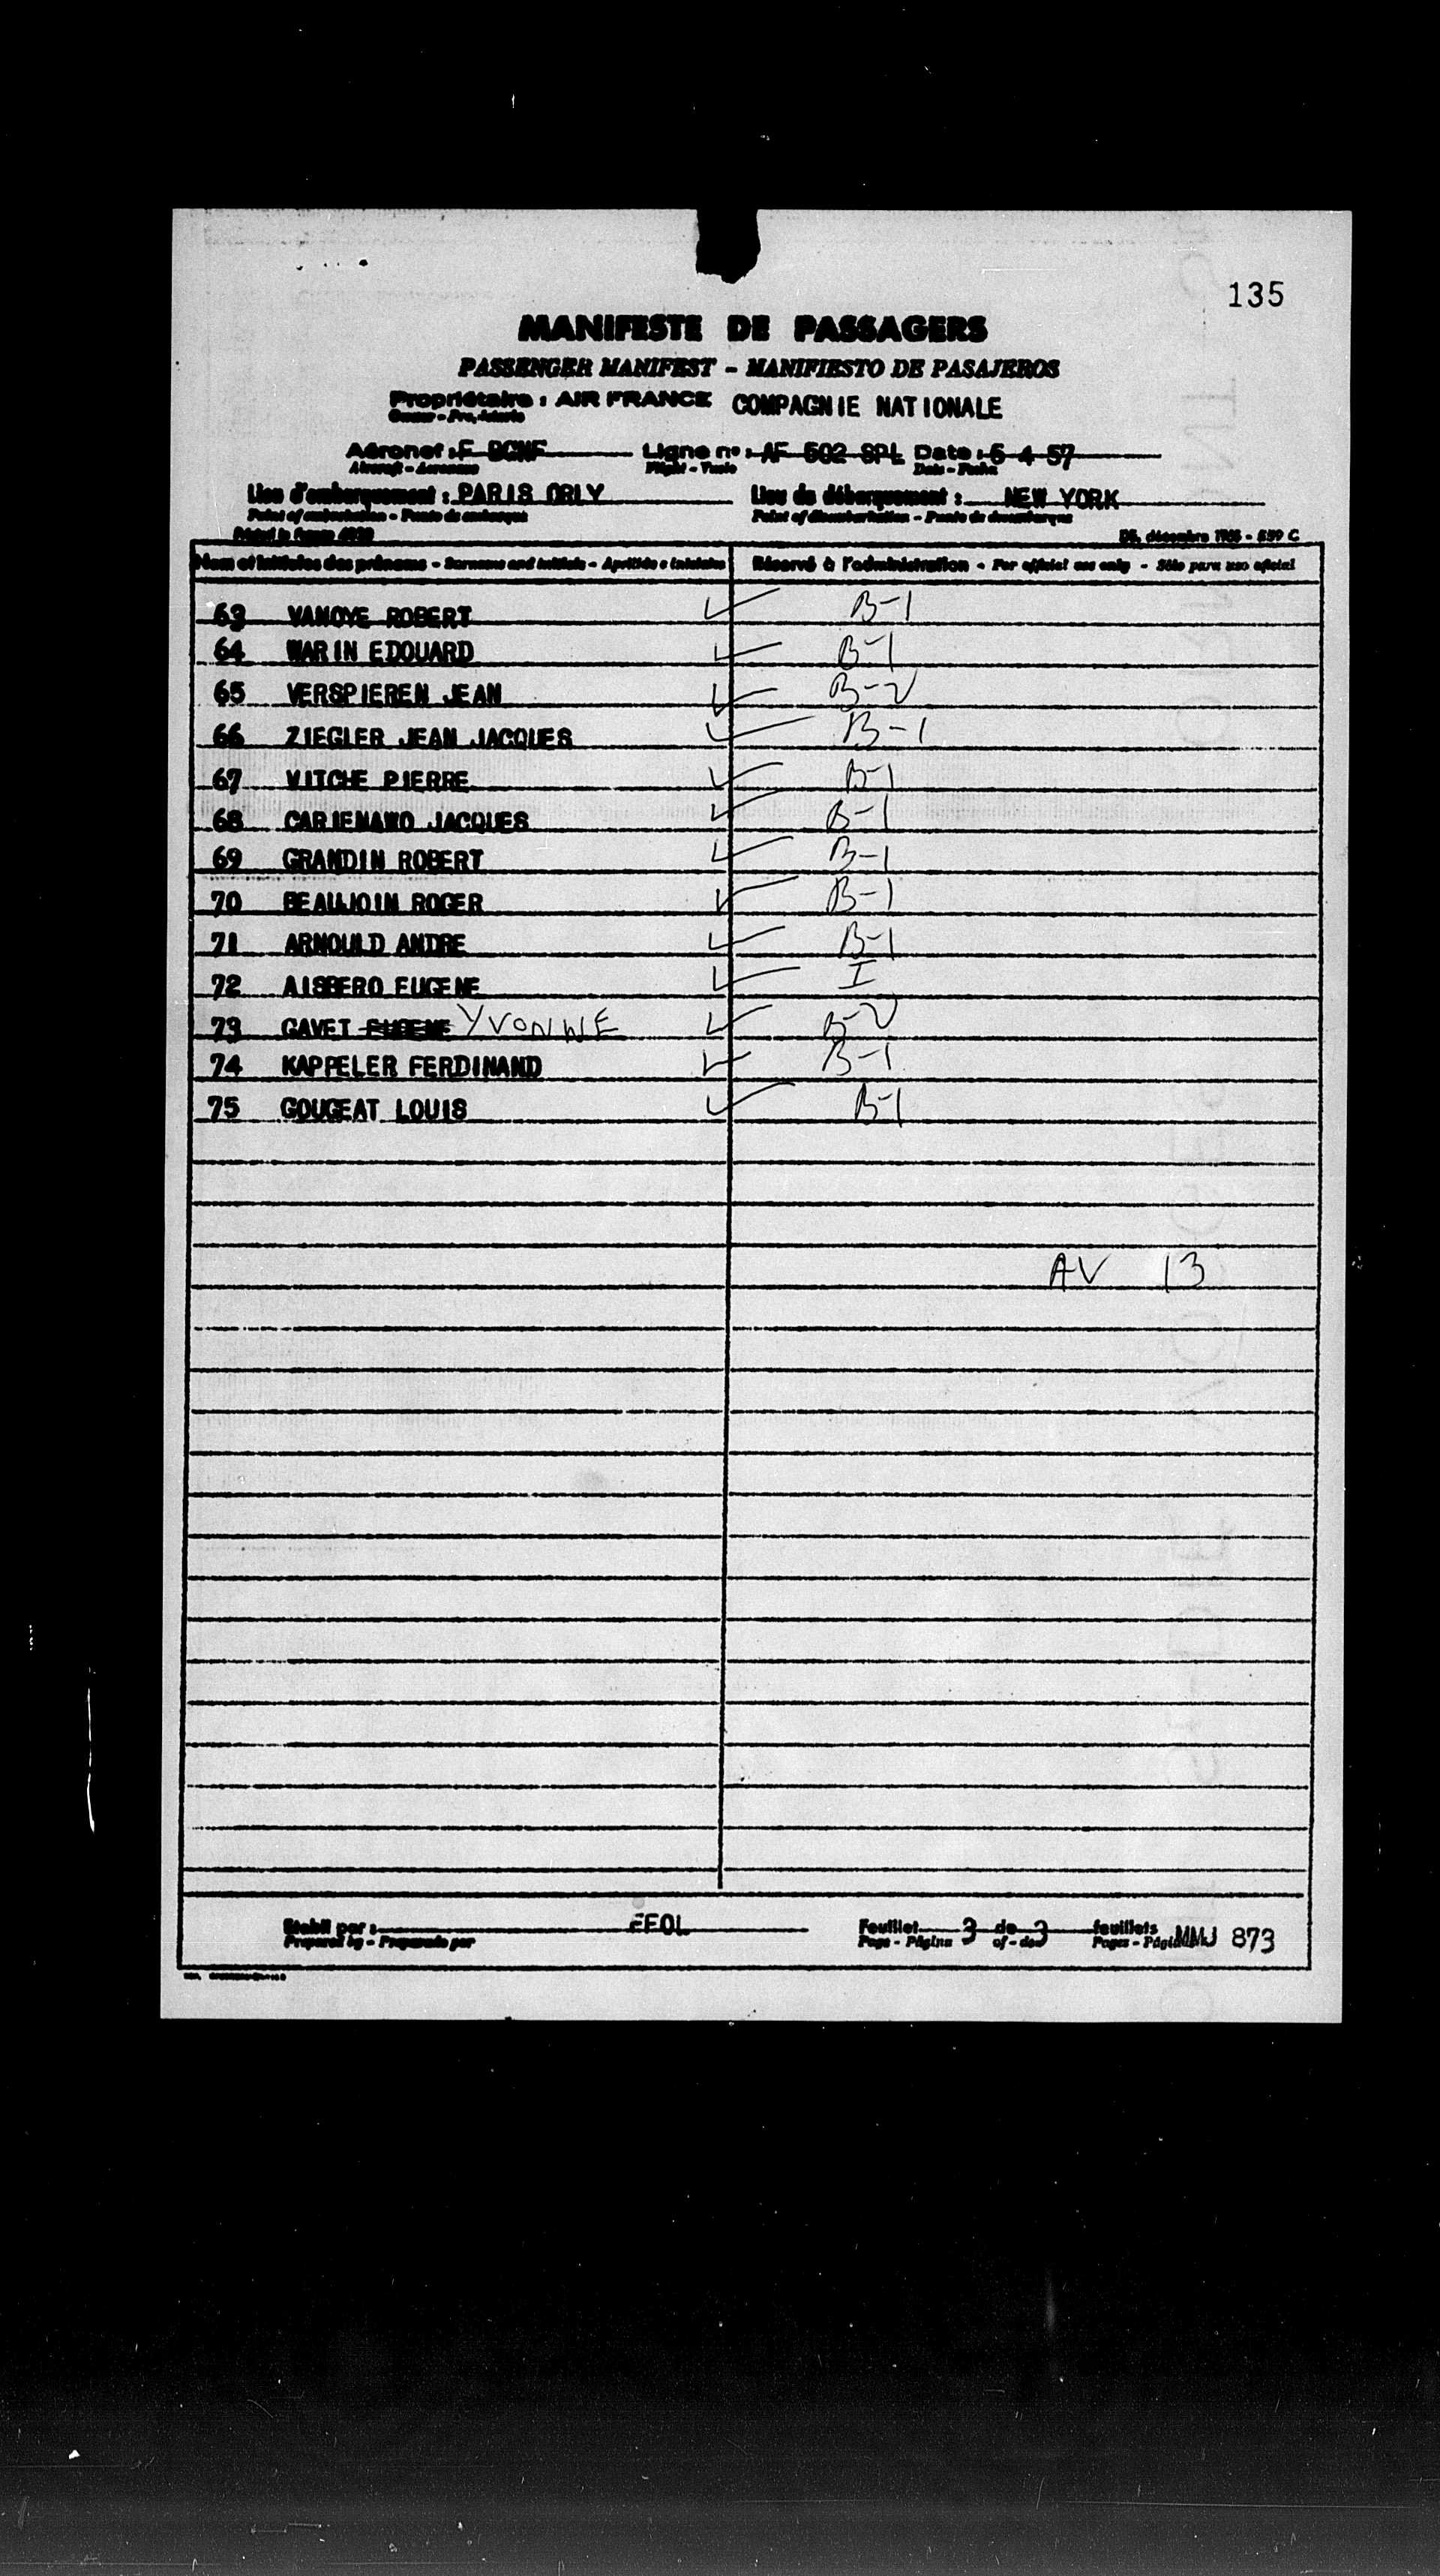 135
MANIFESTE DE PASSAGERS
PASSENGER MANIFEST - MANIFIESTO DE PASAJEROS
Propriétaire : AIR FRANCE COMPAGNIE NATIONALE
Owner -
Aéronef : F BCNF Ligne n° : AF 502 SPL Date : 5 4 57
Aircraft - Aeronave Flight - Vuelo Date - Fecha
Lieu d'embarquement : PARIS ORLY Lieu de débarquement : NEW YORK
Point of embarkation - Punto de embarque Point of disembarkation - Punto de desembarque
Printed in France
Nom et initiales des prénoms - Surname and initials - Apellido e iniciales Réservé à l'administration - For official use only - Sólo para uso oficial
63 VANOYE ROBERT B-1
64 WARIN EDOUARD B-1
65 VERSPIEREN JEAN B-2
66 ZIEGLER JEAN JACQUES B-1
67 VITCHE PIERRE B-1
68 CARIENAWO JACQUES B-1
69 GRANDIN ROBERT B-1
70 BEAUJOIN ROGER B-1
71 ARNOULD ANDRE B-1
72 AISBERO EUGENE I
73 GAVET EUGENE YVONNE B-2
74 KAPPELER FERDINAND B-1
75 GOUGEAT LOUIS B-1
AV 13
Etabli par : EEOL Feuillet 3 de 3 feuillets MMJ 873
Prepared by - Preparado por Page - Página of - de Pages -